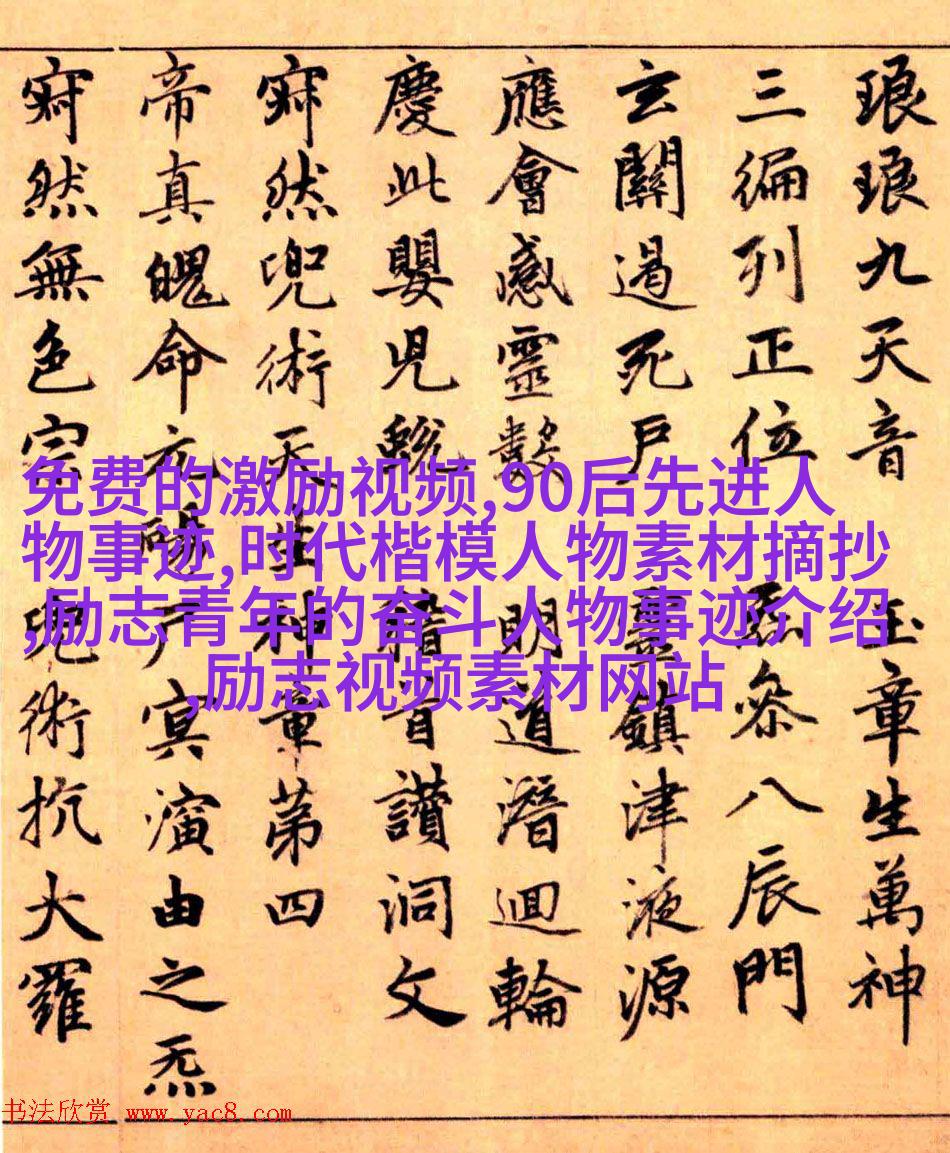 琅琅九天音 玉章生萬神
三徧列正位 炁叅八辰門
玄關過死戶 靈鎮津液源
應會感靈數 明道潛迴輪
慶此嬰兒 稽首讃洞文
寂然兜術天生神章第四
帝真魄命元陽戶冥演由之炁
寂然無色宗 兜術抗大羅
免费的激励视频,90后先进人
物事迹,时代楷模人物素材摘抄
,励志青年的奋斗人物事迹介绍
,励志视频素材网站
书法欣赏 www.yac8.com